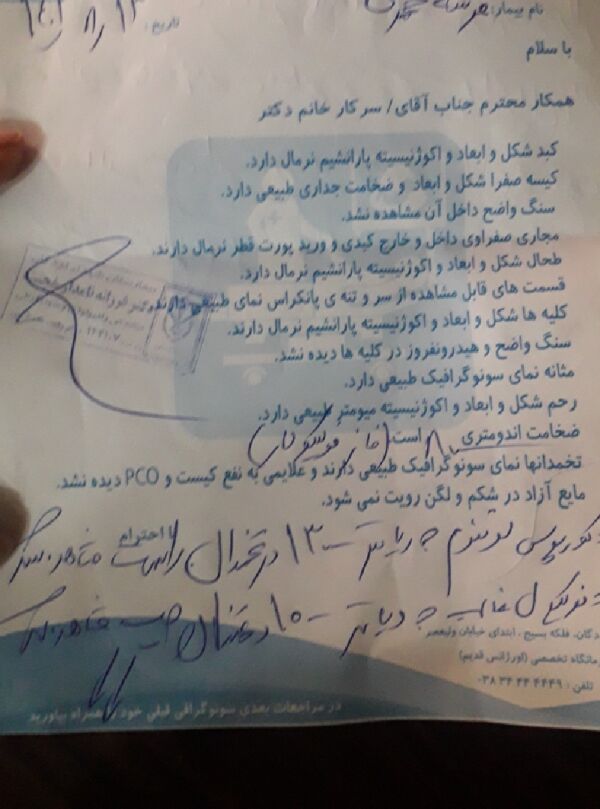 نام بیمار:
تاریخ:
با سلام
همکار محترم جناب آقای/ سر کار خانم دکتر
کبد شکل و ابعاد و اکوژنیسیته پارانشیم نرمال دارد.
کیسه صفرا شکل و ابعاد و ضخامت جداری طبیعی دارد.
سنگ واضح داخل آن مشاهده نشد.
مجاری صفراوی داخل و خارج کبدی و ورید پورت قطر نرمال دارند.
طحال شکل و ابعاد و اکوژنیسیته پارانشیم نرمال دارد.
قسمت های قابل مشاهده از سر و تنه ی پانکراس نمای طبیعی دارند.
کلیه ها شکل و ابعاد و اکوژنیسیته پارانشیم نرمال دارند.
سنگ واضح و هیدرونفروز در کلیه ها دیده نشد.
مثانه نمای سونوگرافیک طبیعی دارد.
رحم شکل و ابعاد و اکوژنیسیته میومتر طبیعی دارد.
ضخامت اندومتری ۸ است.
تخمدانها نمای سونوگرافیک طبیعی دارند و علایمی به نفع کیست و PCO دیده نشد.
مایع آزاد در شکم و لگن رویت نمی شود.
با احترام
کورپوس لوتئوم به دیامتر ۱۳ در تخمدان راست مشاهده شد
فولیکول غالب به دیامتر ۱۰ در تخمدان چپ مشاهده شد
دگان، فلکه بسیج، ابتدای خیابان ولیعصر
رمانگاه تخصصی (اورژانس قدیم)
تلفن: ۴۴۴۹ ۳۴ ۳۴-۰۳۸
در مراجعات بعدی سونوگرافی قبلی خود همراه بیاورید